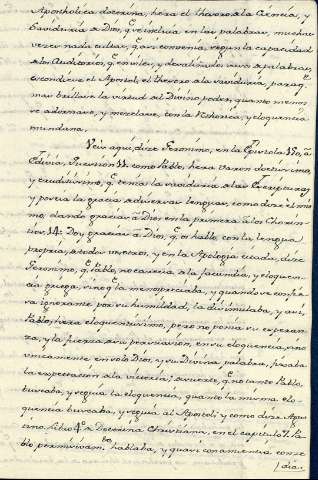 Apostholica doctrina, hera el thesoro ala Ciencia, y
Saviduria a Dios, q.e incluia en las palabras, muchas
veces nada cultas, q.e as convenia, segun la capacidad
a los Auditorios, q.e en viles, y desaliñados vasos a palabras,
escondiese el Apostol, el thesoro ala savíduria, para q.
mas brillase la virtud al Divino poder, quanto menos
se adornase, y mezclase, con la Rethorica, y eloquencia
mundana.
Veis aqui, dize Geronimo, en la Epistola 150, a
Edivia, Question 11. como Pablo, hera varon doctissimo,
y eruditissimo, q.e tenia la savíduria a las Escripturas,
y poseia la gracia a diversas lenguas, como dize el mis
mo, dando gracias a Dios en la primera a los Chorin-
tios, 14. Doy gracias a Dios, q.e os hablo, con la lengua
propria, a todos vosotros, y en la Apologia citada, dize
Geronimo, q.e Pablo, no carecia ala facundia, y eloquen
cia griega, sino q.e la menospreciaba, y quando se confesa
va ignorante por su humildad, la disimulaba, y assi,
Pablo, hera eloquentissimo, pero no ponia su esperan
za, y la fuerza a su persuasion, en su eloquencia, sino
unicamente en solo Dios, y su Divina palabra, fixaba
la espectacion ala victoria; advierte, q.e no tanto Pablo,
buscaba, y seguia la eloquencia, quanto la misma elo-
quencia buscaba, y seguia al Apostol; y como dize Agus
tino Libro 4.o a Doctrina Christiana, en el capitulo 7. Pa
blo hablaba, y quasi con
/ dia.